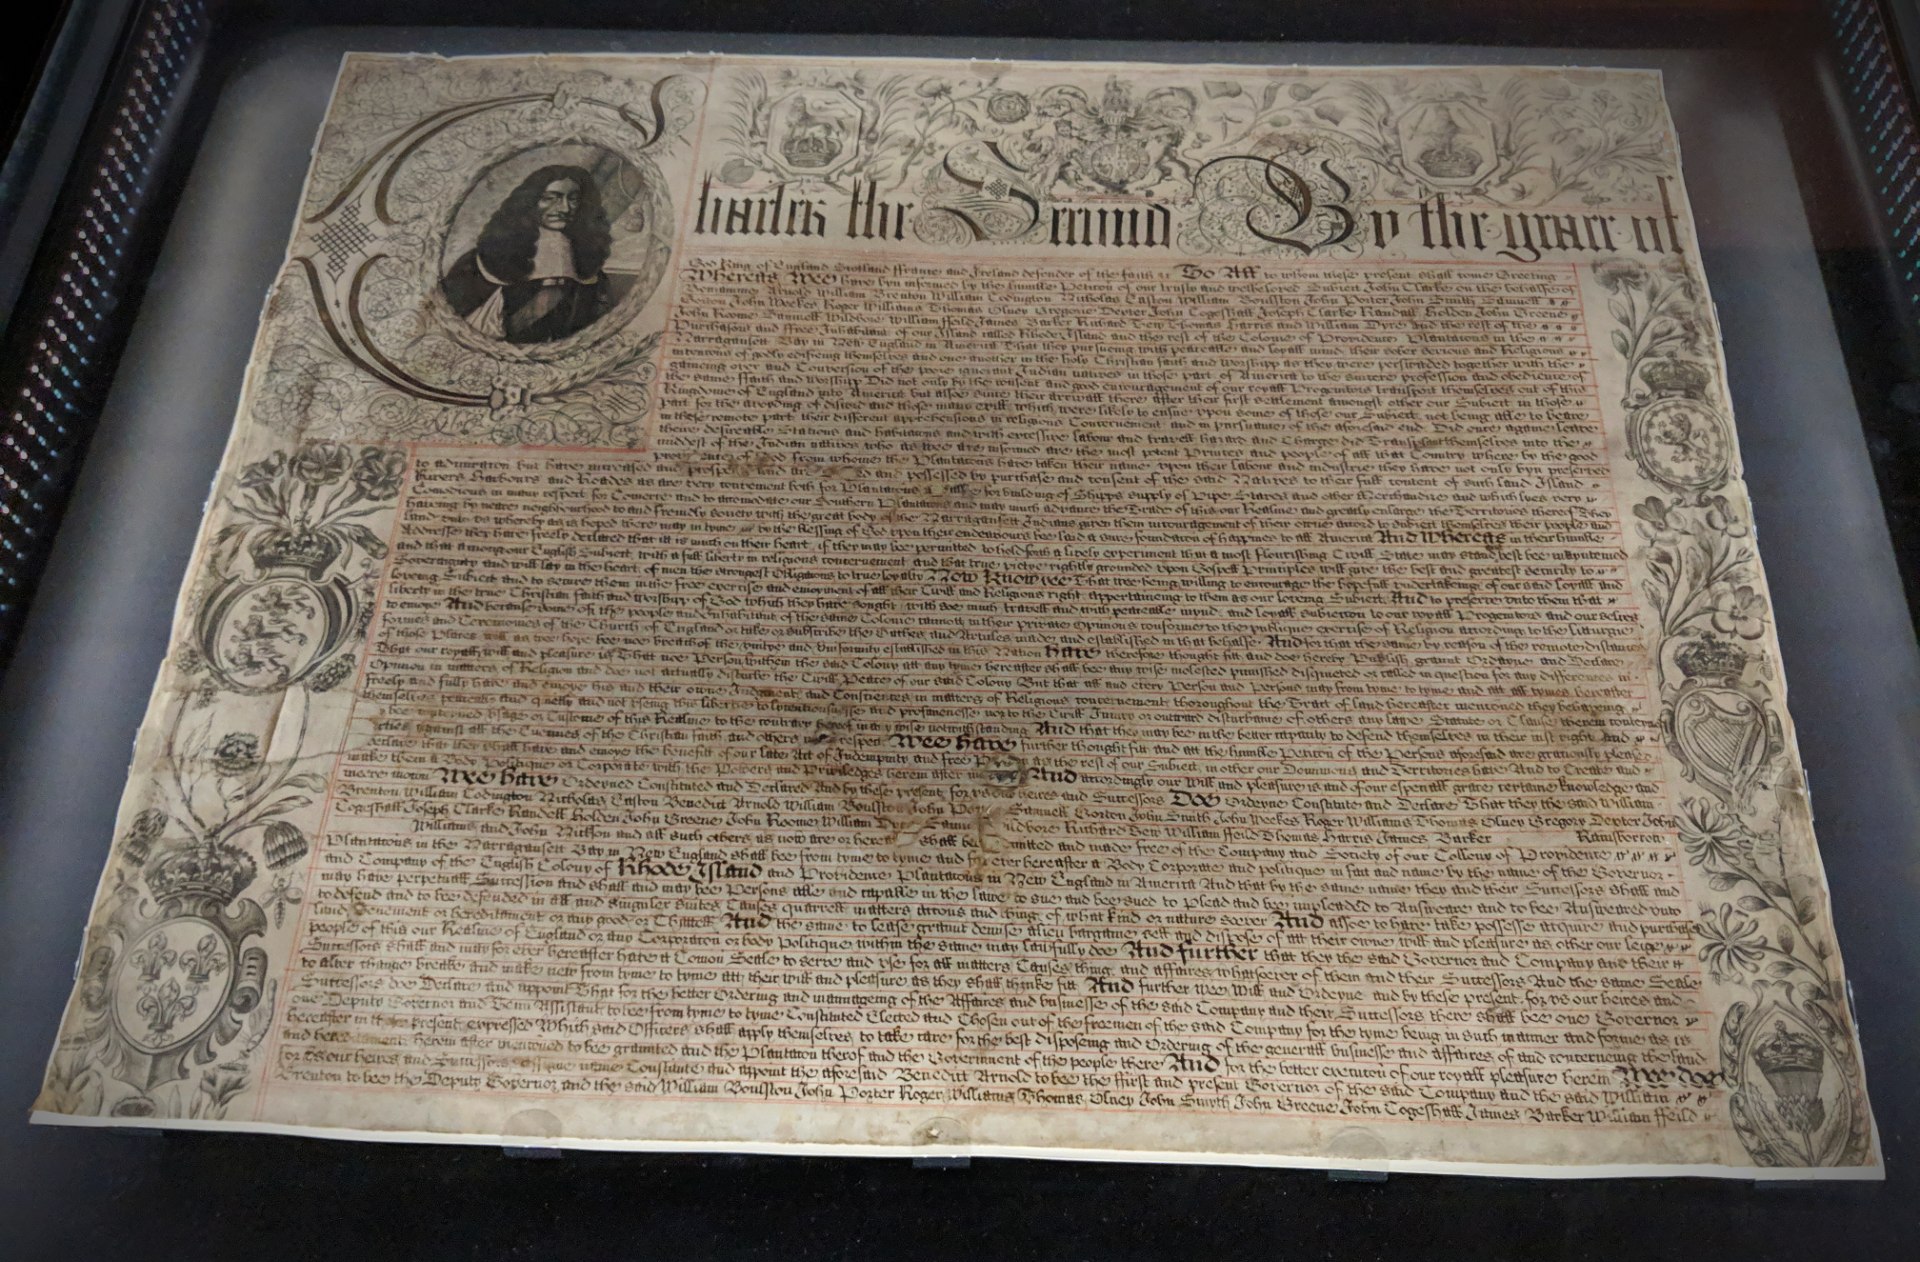 Charles the Second By the grace of
God King of England Scotland ffrance and Ireland defender of the faith &c To All to whom these present shall come Greeting
Whereas Wee have byn informed by the humble Peticon of our trusty and welbeloved Subiect John Clarke on the behalfe of
Beniamine Arnold William Brenton William Codington Nicholas Easton William Boulston John Porter John Smith Samuell
Gorton John Weekes Roger Williams Thomas Olney Gregorie Dexter John Cogeshall Joseph Clarke Randall Holden John Greene
John Roome Samuell Wildbore William ffeild James Barker Richard Tew Thomas Harris and William Dyre and the rest of the
Purchasors and ffree Inhabitant of our Island called Rhode Island and the rest of the Colonie of Providence Plantacons in the
Narragansett Bay in New England in America That they pursueing with peaceable and loyall mind their sober serious and Religious
intencons of godly edifieing themselves and one another in the holy Christian faith and worshipp as they were perswaded together with the
gaineing over and Conversion of the poore ignorant Indian natives in those part of America to the sincere profession and obedience of
the same ffaith and worshipp Did not only by the consent and good encouragement of our royall Progenitors transport themselves out of this
Kingdome of England into America but alsoe since their arrivall there after their first settlement amongst other our Subiect in those
part for the avoyding of discord and those many evill which were likely to ensue upon some of those our Subiect not being able to beare
in these remote part their different apprehensions in religious Concernement and in pursuance of the aforesaid end Did once againe leave
their desireable Stations and habitacons and with excessive labour and travell hazard and Charge did Transplant themselves into the
middest of the Indian natives who as wee are informed are the most potent Princes and people of all that Country where by the good
of God from whome the Plantacons have taken their name upon their labour and industrie they have not only byn preserved
to admiracon but have increased and and are and possessed by purchase and consent of the said Natives to their full content of such land Island
Rivers Harbours and Roades as are very convenient both for Plantacons and for building of Shipps supply of Pipe Staves and other Merchandize and which lies very
Comodious in many respect for Comerce and to accomodate our Southern Plantacons and may much advance the Trade of this our Realme and greatly enlarge the Territories thereof They
haveing by neare neighbourhood to and friendly society with the great body of the Narragansett Indians given them incouragement of their owne accord to subiect themselves their people and
land unto us whereby as is hoped there may in tyme by the blessing of God upon their endeavours bee laid a sure foundacon of happines to all America And Whereas in their humble
Addresse they have freely declared that it is much on their heart if they may bee permitted to hold forth a lively experiment that a most flourishing Civill State may stand best bee maynteined
and that among our English Subiect with a full liberty in religious concernement and that true pietye rightly grounded upon Gospell Principles will give the best and greatest security to
Soveraignty and will lay in the heart of men the strongest Obligacons to true loyalty Now Know yee That wee being willing to encourage the hopefull undertakeing of our said loyall and
loveing Subiect and to secure them in the free exercise and enioyment of all their Civill and Religious right appertaining to them as our loveing Subiect And to preserve unto them that
liberty in the true Christian faith and worshipp of God which they have sought with soe much travell and with peaceable mynd and loyall subiection to our royall Progenitors and our selves
to enioye And because some of the people and inhabitant of the same Colonie cannot in their private Opinions conforme to the publique exercise of Religion according to the Liturgie
formes and Ceremonies of the Church of England or take or subscribe the Oathes and Articles made and established in that behalfe And for that the same by reason of the remote distances
of those Places will as wee hope bee noe breach of the unitye and Uniformity established in this Nation Have therefore thought fitt and doe hereby Publish graunt Ordeyne and Declare
That our royall will and pleasure is That noe Person within the said Colony att any tyme hereafter shall bee any wise molested punished disquieted or called in question for any differences in
Opinion in matters of Religion and doe not actually disturbe the Civill Peace of our said Colony But that all and every Person and Persons may from tyme to tyme and att all tymes hereafter
freely and fully have and enioye his and their owne Judgment and Consciences in matters of Religious concernement throughout the Tract of land hereafter mentioned they behaveing
themselves peaceably and quietly and not useing this libertie to Lycentiousnesse and profanenesse nor to the Civill Iniury or outward disturbance of others any lawe Statute or Clause therein
usage or Custome of this Realme to the contrary hereof in any wise notwithstanding And that they may bee in the better capacity to defend themselves in their iust right and
against all the Enemies of the Christian faith and others in respect Wee have further thought fitt and att the humble Peticon of the Persons aforesaid are graciously pleased
declare that they shall have and enioye the benefitt of our late Act of Indempnity and free as the rest of our Subiect in other our Dominions and Territories have And to Create and
make them a Body Politique or Corporate with the Powers and Priviledges herein after And accordingly our Will and pleasure is and of our especiall grace certaine knowledge and
meere mocon Wee have Ordeyned Constituted and Declared And by these present for us our heires and Successors Doe Ordeyne Constitute and Declare That they the said William
Brenton William Codington Nicholas Easton Benedict Arnold William Boulston John Samuell Gorton John Smith John Weekes Roger Williams Thomas Olney Gregory Dexter John
Cogeshall Joseph Clarke Randell Holden John Greene John Roome William Richard Tew William ffeild Thomas Harris James Barker Rainsborrow
Williams and John Nickson and all such others as now are or shall bee admitted and made free of the Company and Society of our Collony of Providence
Plantacons in the Narragansett Bay in New England shall bee from tyme to tyme and for ever hereafter a Body Corporate and politique in fact and name by the name of the Governor
and Company of the English Colony of Rhode Island and Providence Plantacons in New England in America And that by the same name they and their Successors shall and
may have perpetuall Succession and shall and may bee Persons able and capable in the lawe to sue and bee sued to Plead and bee impleaded to Answeare and to bee Answeared unto
to defend and to bee defended in all and singuler suites Causes quarrell matters accons and thing of what kind or nature soever And alsoe to have take possesse acquire and purchase
land Tenement or hereditament or any good or Chattell And the same to lease graunt demise alien bargaine sell and dispose of att their owne will and pleasure as other our leige
people of this our Realme of England or any Corporacon or body Politique within the same may lawfully doe And further that they the said Governor and Company and their
Successors shall and may for ever hereafter have a Comon Seale to serve and use for all matters Causes thing and affaires whatsoever of them and their Successors And the same Seale
to alter change breake and make new from tyme to tyme att their will and pleasure as they shall thinke fitt And further wee Will and Ordeyne and by these present for us our heires and
Successors doe Declare and appoint That for the better Ordering and mannageing of the Affaires and businesse of the said Company and their Successors there shall bee one Governor
one Deputy Governor and Tenn Assistant to bee from tyme to tyme Constituted Elected and Chosen out of the freemen of the said Company for the tyme being in such manner and forme as is
hereafter in present expressed Which said Officers shall apply themselves to take care for the best disposeing and Ordering of the generall businesse and affaires of and concerneing the land
and herein after mentioned to bee graunted and the Plantacon thereof and the Government of the people there And for the better execucon of our royall pleasure herein Wee doe
for us our heires and Successors name Constitute and appoint the aforesaid Benedict Arnold to bee the ffirst and present Governor of the said Company and the said William
Brenton to bee the Deputy Governor and the said William Boulston John Porter Roger Williams Thomas Olney John Smyth John Greene John Cogeshall James Barker William ffeild